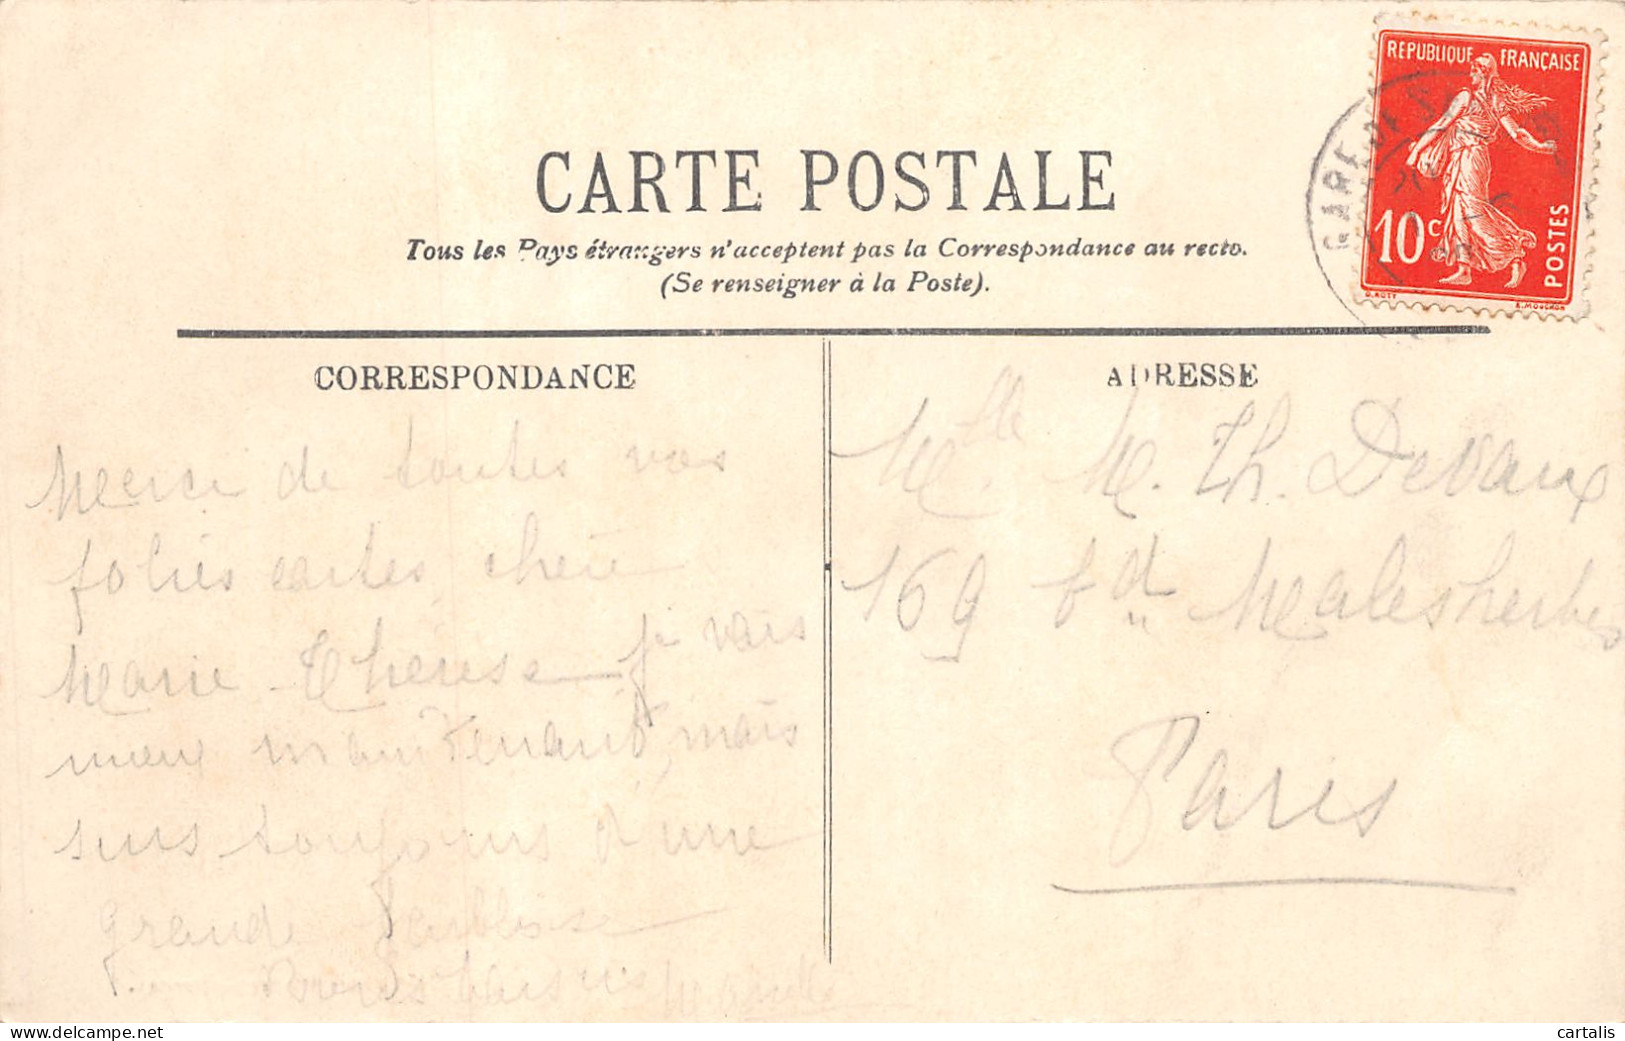 RÉPUBLIQUE FRANÇAISE
10c
POSTES
O. ROTY
E. MOUCHON
GARE DE S
CARTE POSTALE
Tous les Pays étrangers n'acceptent pas la Correspondance au recto.
(Se renseigner à la Poste).
CORRESPONDANCE
ADRESSE
Merci de toutes vos
jolies cartes, chère
Marie-Thérèse je vais
mieux maintenant, mais
suis toujours d'une
grande faiblesse
Bons baisers
Mlle M. Th. Devaux
169 bd Malesherbes
Paris
cartalis